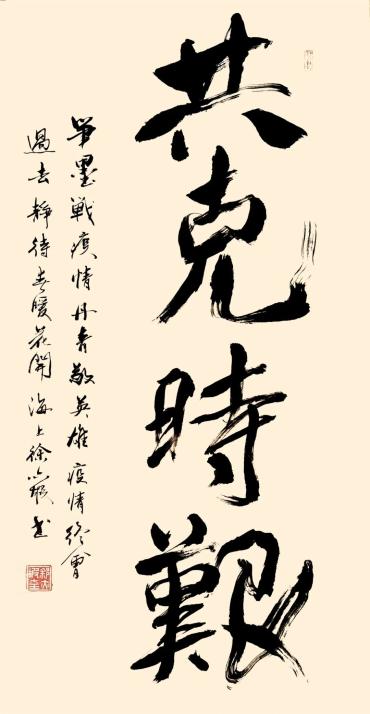 共克時艱
筆墨戰疫情丹青敬英雄疫情終會
過去靜待春暖花開海上徐小嚴書